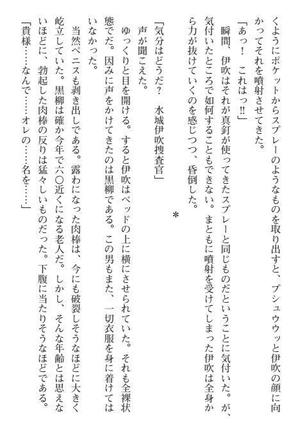 くようにポケットからスプレーのようなものを取り出すと、プシュウウッと伊吹の顔に向
かってそれを噴射させてきた。
「あっ！　これはっ!!」
　瞬間、伊吹はそれが真釘が使ってきたスプレーと同じものだということに気付いた。が、
気付いたところで如何することもできない。まともに噴射を受けてしまった伊吹は全身か
ら力が抜けていくのを感じつつ、昏倒した。
＊
「気分はどうだ？　水城伊吹捜査官」
　声が聞こえた。
　ゆっくりと目を開ける。すると伊吹はベッドの上に横にさせられていた。それも全裸状
態でだ。因みに声をかけてきたのは黒柳である。この男もまた、一切衣服を身に着けては
いなかった。
　当然ペニスも剥き出しである。露わになった肉棒は、今にも破裂しそうなほどに大きく
屹立していた。黒柳は確か今年で六〇近くになる老人だ。しかし、そんな年齢とは思えな
いほどに、勃起した肉棒の反りは猛々しいものだった。下腹に当たりそうなほどである。
「貴様……なんで……オレの……名を……」